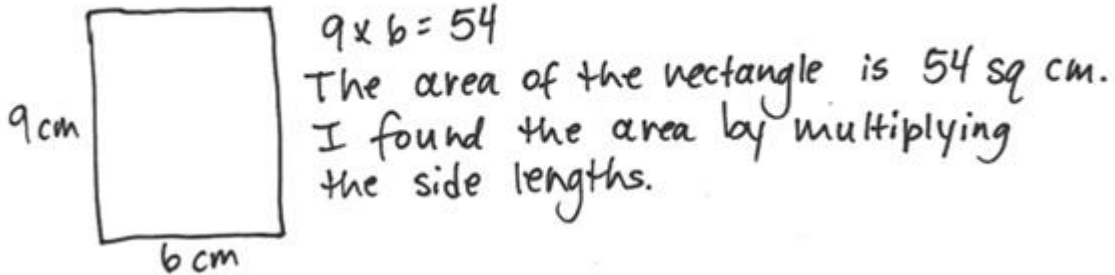 9 x 6 = 54
The area of the rectangle is 54 sq cm.
9 cm
I found the area by multiplying
the side lengths.
6 cm